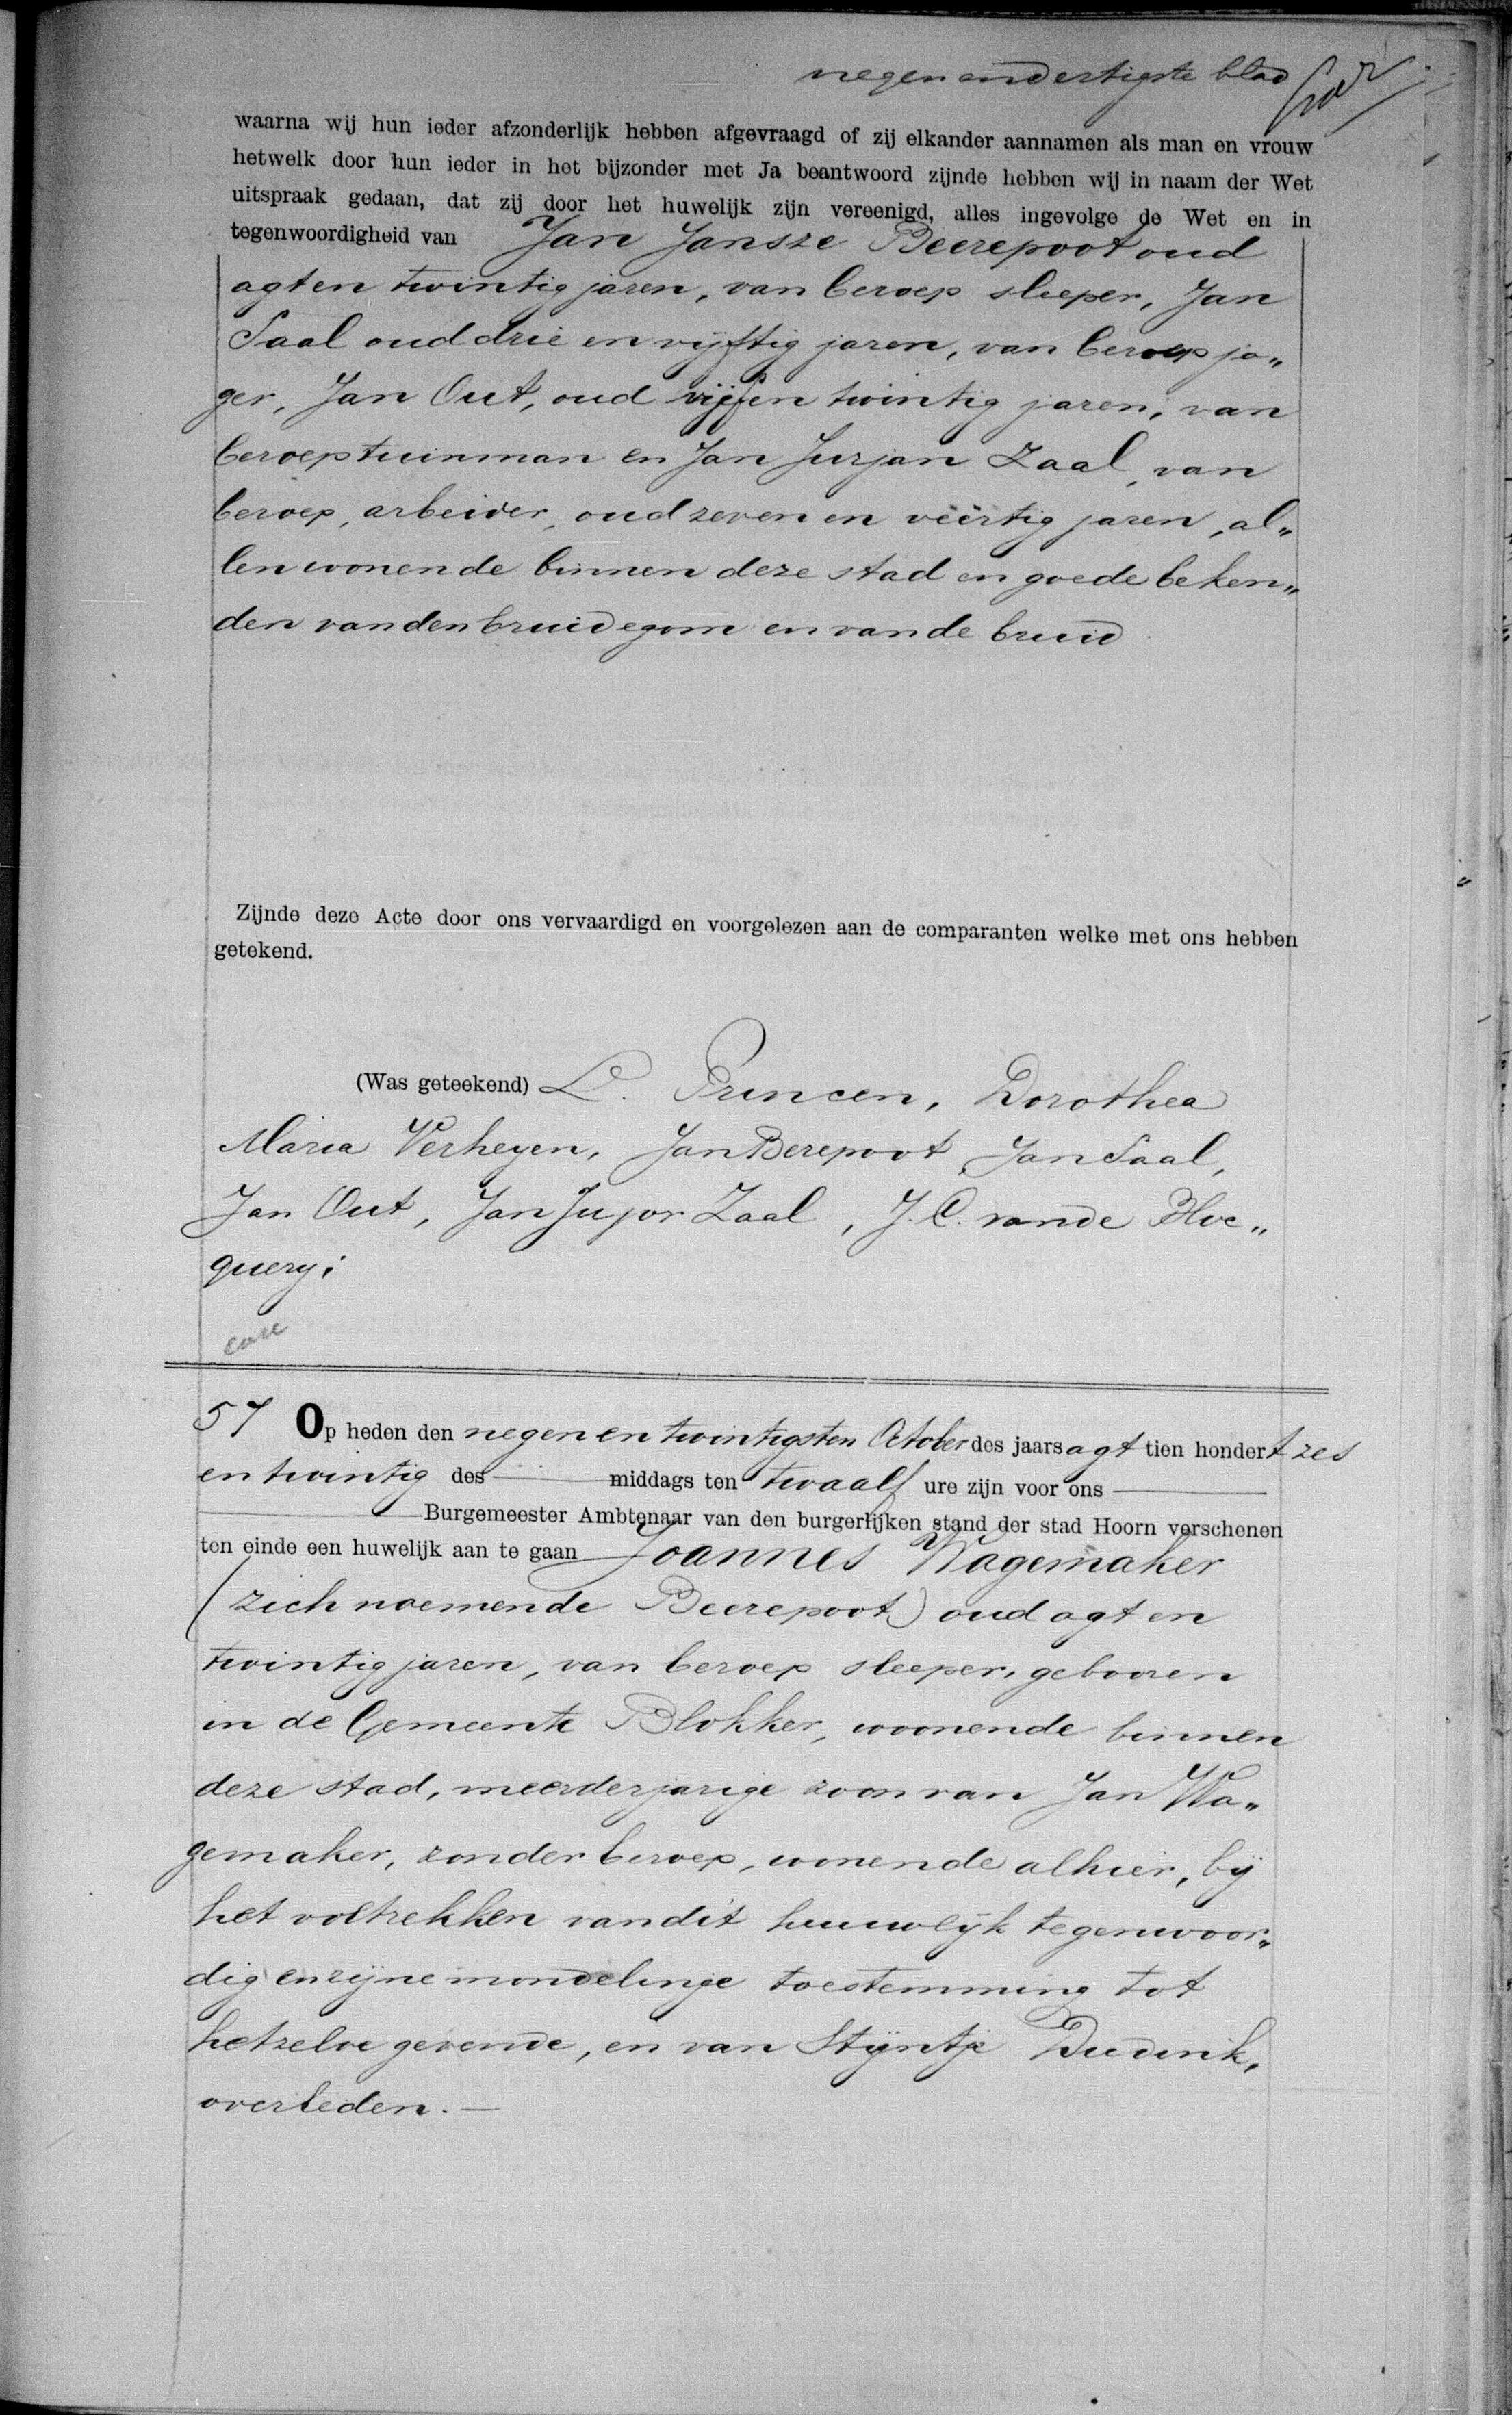 negen en dertigste blad
waarna wij hun ieder afzonderlijk hebben afgevraagd of zij elkander aannamen als man en vrouw
hetwelk door hun ieder in het bijzonder met Ja beantwoord zijnde hebben wij in naam der Wet
uitspraak gedaan, dat zij door het huwelijk zijn vereenigd, alles ingevolge de Wet en in
tegenwoordigheid van Jan Jansze Beerepoot oud
agt en twintig jaren, van beroep sleeper, Jan
Saal oud drie en vijftig jaren, van beroep ja„
ger, Jan Out, oud vijf en twintig jaren, van
beroep tuinman en Jan Jurjan Zaal, van
beroep, arbeider, oud zeven en veertig jaren, al„
len wonende binnen deze stad en goede beken„
den van den bruidegom en van de bruid
Zijnde deze Acte door ons vervaardigd en voorgelezen aan de comparanten welke met ons hebben
getekend.
(Was geteekend) L. Princen, Dorothea
Maria Verheyen, Jan Berepoot, Jan Saal,
Jan Out, Jan Jujor Zaal, J. C. van de Bloc„
query.
57 Op heden den negen en twintigsten October des jaars agt tien hondert zes
en twintig des middags ten twaalf ure zijn voor ons
Burgemeester Ambtenaar van den burgerlijken stand der stad Hoorn verschenen
ten einde een huwelijk aan te gaan Joannes Wagemaker
(zich noemende Beerepoot) oud agt en
twintig jaren, van beroep sleeper, gebooren
in de Gemeente Blokker, woonende binnen
deze stad, meerderjarige zoon van Jan Wa„
gemaker, zonder beroep, wonende alhier, bij
het voltrekken van dit huuwlijk tegenwoor„
dig en zijne mondelinge toestemming tot
hetzelve gevende, en van Stijntje Dudink,
overleden.—